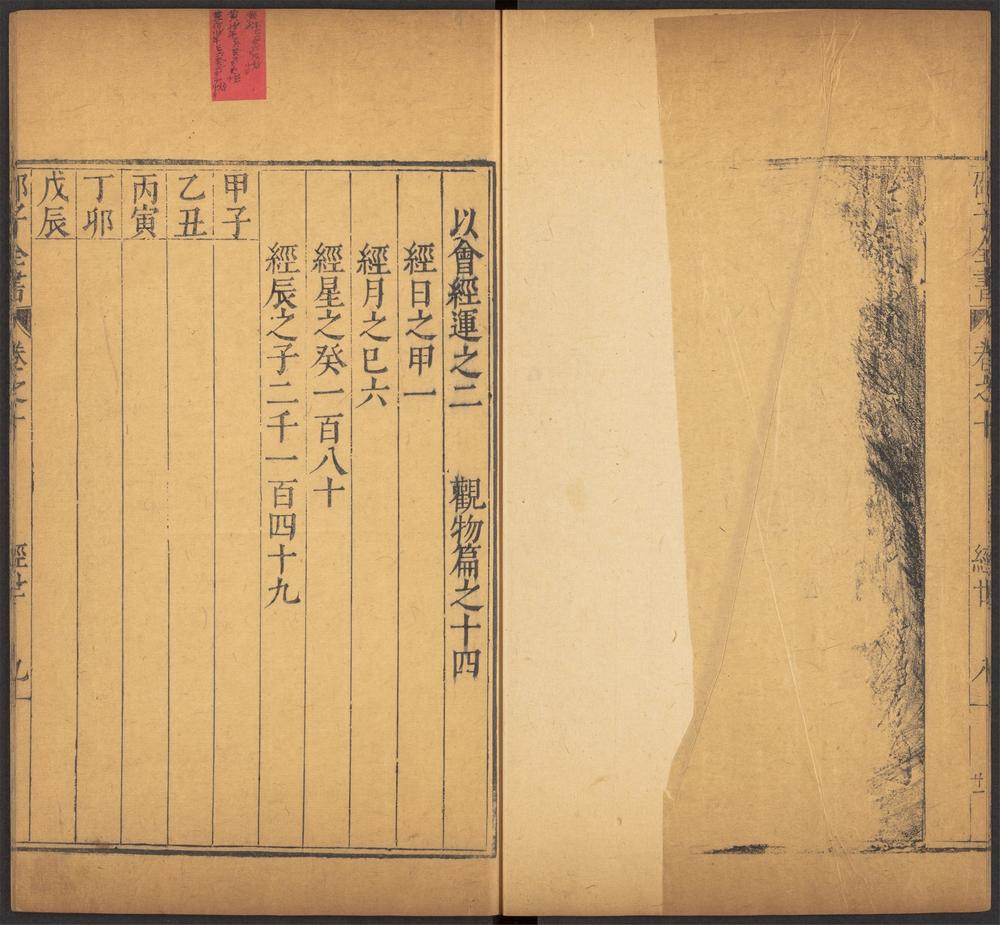 邵子全書 卷之十 經世 八一
以會經運之二 觀物篇之十四
經日之甲一
經月之巳六
經星之癸一百八十
經辰之子二千一百四十九
甲子
乙丑
丙寅
丁卯
戊辰
邵子全書 卷之十 經世 九一